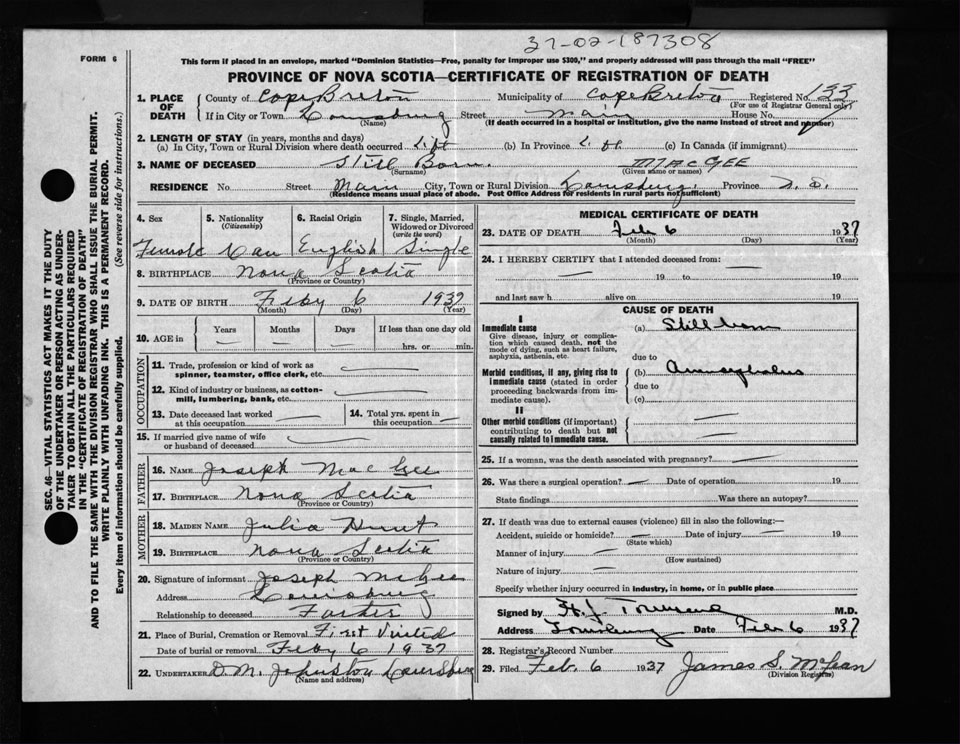 37-02-187308
FORM 6
This form if placed in an envelope, marked "Dominion Statistics—Free, penalty for improper use $300," and properly addressed will pass through the mail "FREE"
PROVINCE OF NOVA SCOTIA—CERTIFICATE OF REGISTRATION OF DEATH
1. PLACE OF DEATH County of Cape Breton Municipality of Cape Breton Registered No. 133
(For use of Registrar General only)
If in City or Town Louisburg Street Main House No.
(Name) (If death occurred in a hospital or institution, give the name instead of street and number)
2. LENGTH OF STAY (in years, months and days)
(a) In City, Town or Rural Division where death occurred Life (b) In Province Life (c) In Canada (if immigrant)
3. NAME OF DECEASED Still Born MACGEE
(Surname) (Given name or names)
RESIDENCE No. Street Main City, Town or Rural Division Louisburg Province N. S.
(Residence means usual place of abode. Post Office Address for residents in rural parts not sufficient)
4. Sex 5. Nationality (Citizenship) 6. Racial Origin 7. Single, Married, Widowed or Divorced (write the word)
Female Can English Single
8. BIRTHPLACE Nova Scotia
(Province or Country)
9. DATE OF BIRTH Feby 6 1937
(Month) (Day) (Year)
10. AGE in Years Months Days If less than one day old
hrs. or min.
OCCUPATION
11. Trade, profession or kind of work as spinner, teamster, office clerk, etc.
12. Kind of industry or business, as cotton-mill, lumbering, bank, etc.
13. Date deceased last worked at this occupation 14. Total yrs. spent in this occupation
15. If married give name of wife or husband of deceased
FATHER
16. NAME Joseph MacGee
17. BIRTHPLACE Nova Scotia
(Province or Country)
MOTHER
18. MAIDEN NAME Julia Hunt
19. BIRTHPLACE Nova Scotia
(Province or Country)
20. Signature of informant Joseph McGee
Address Louisburg
Relationship to deceased Father
21. Place of Burial, Cremation or Removal First United
Date of burial or removal Feby 6 1937
22. UNDERTAKER D.M. Johnston Louisburg
(Name and address)
MEDICAL CERTIFICATE OF DEATH
23. DATE OF DEATH Feb 6 1937
(Month) (Day) (Year)
24. I HEREBY CERTIFY that I attended deceased from:
19 to 19
and last saw h alive on 19
CAUSE OF DEATH
I
Immediate cause (a) Stillborn
Give disease, injury or complication which caused death, not the mode of dying, such as heart failure, asphyxia, asthenia, etc.
due to
Morbid conditions, if any, giving rise to immediate cause (stated in order proceeding backwards from immediate cause). (b)
due to
(c)
II
Other morbid conditions (if important) contributing to death but not causally related to immediate cause.
25. If a woman, was the death associated with pregnancy?
26. Was there a surgical operation? Date of operation 19
State findings Was there an autopsy?
27. If death was due to external causes (violence) fill in also the following:—
Accident, suicide or homicide? Date of injury 19
(State which)
Manner of injury
(How sustained)
Nature of injury
Specify whether injury occurred in industry, in home, or in public place
Signed by M.D.
Address Louisburg Date Feb 6 1937
28. Registrar's Record Number
29. Filed Feb. 6 1937 James S. McLean
(Division Registrar)
AND TO FILE THE SAME WITH THE DIVISION REGISTRAR WHO SHALL ISSUE THE BURIAL PERMIT.
SEC. 46—VITAL STATISTICS ACT MAKES IT THE DUTY OF THE UNDERTAKER OR PERSON ACTING AS UNDERTAKER TO OBTAIN ALL THE PARTICULARS REQUIRED IN THE "CERTIFICATE OF REGISTRATION OF DEATH"
WRITE PLAINLY WITH UNFADING INK. THIS IS A PERMANENT RECORD.
Every item of information should be carefully supplied. (See reverse side for instructions.)